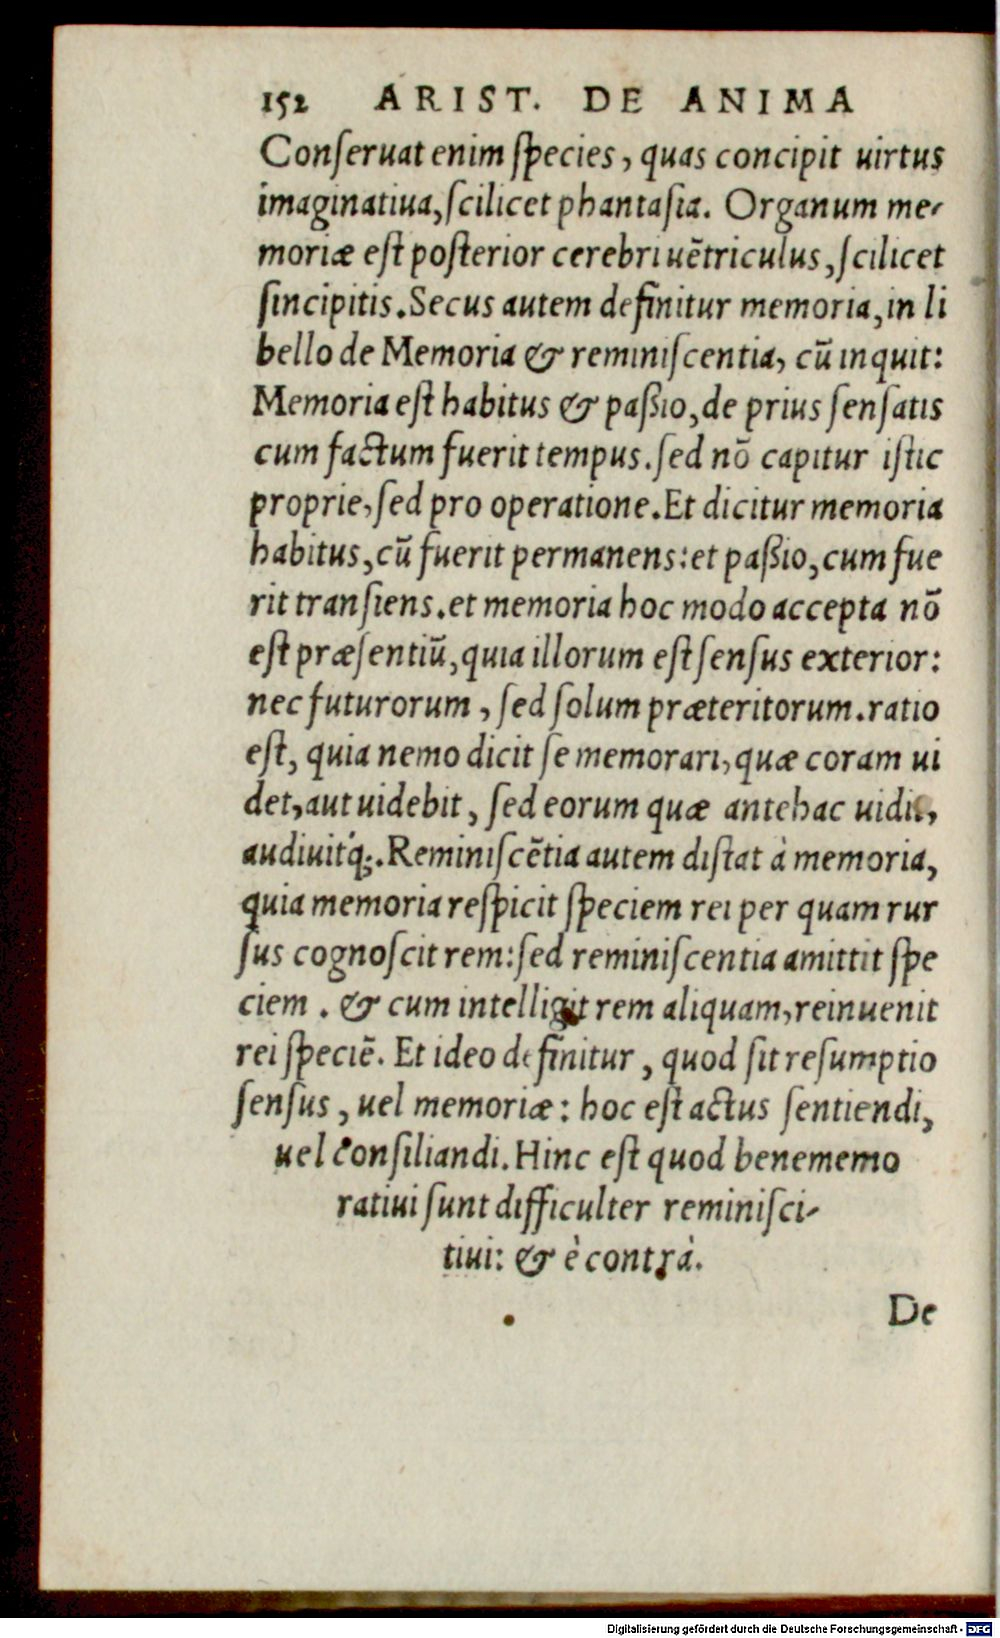 152 ARIST. DE ANIMA
Conſeruat enim ſpecies, quas concipit uirtus
imaginatiua, ſcilicet phantaſia. Organum me-
moriæ eſt poſterior cerebri uẽtriculus, ſcilicet
ſincipitis. Secus autem definitur memoria, in li
bello de Memoria & reminiſcentia, cũ inquit:
Memoria eſt habitus & paßio, de prius ſenſatis
cum factum fuerit tempus. ſed nõ capitur iſtic
proprie, ſed pro operatione. Et dicitur memoria
habitus, cũ fuerit permanens: et paßio, cum fue
rit tranſiens. et memoria hoc modo accepta nõ
eſt præſentiũ, quia illorum eſt ſenſus exterior:
nec futurorum, ſed ſolum præteritorum. ratio
eſt, quia nemo dicit ſe memorari, quæ coram ui
det, aut uidebit, ſed eorum quæ antehac uidit,
audiuit´q;. Reminiſcẽtia autem diſtat à memoria,
quia memoria reſpicit ſpeciem rei per quam rur
ſus cognoſcit rem: ſed reminiſcentia amittit ſpe
ciem. & cum intelligit rem aliquam, reinuenit
rei ſpeciẽ. Et ideo definitur, quod ſit reſumptio
ſenſus, uel memoriæ: hoc eſt actus ſentiendi,
uel conſiliandi. Hinc eſt quod bene memo
ratiui ſunt difficulter reminiſci-
tiui: & è contrà.
De
Digitalisierung gefördert durch die Deutsche Forschungsgemeinschaft - DFG